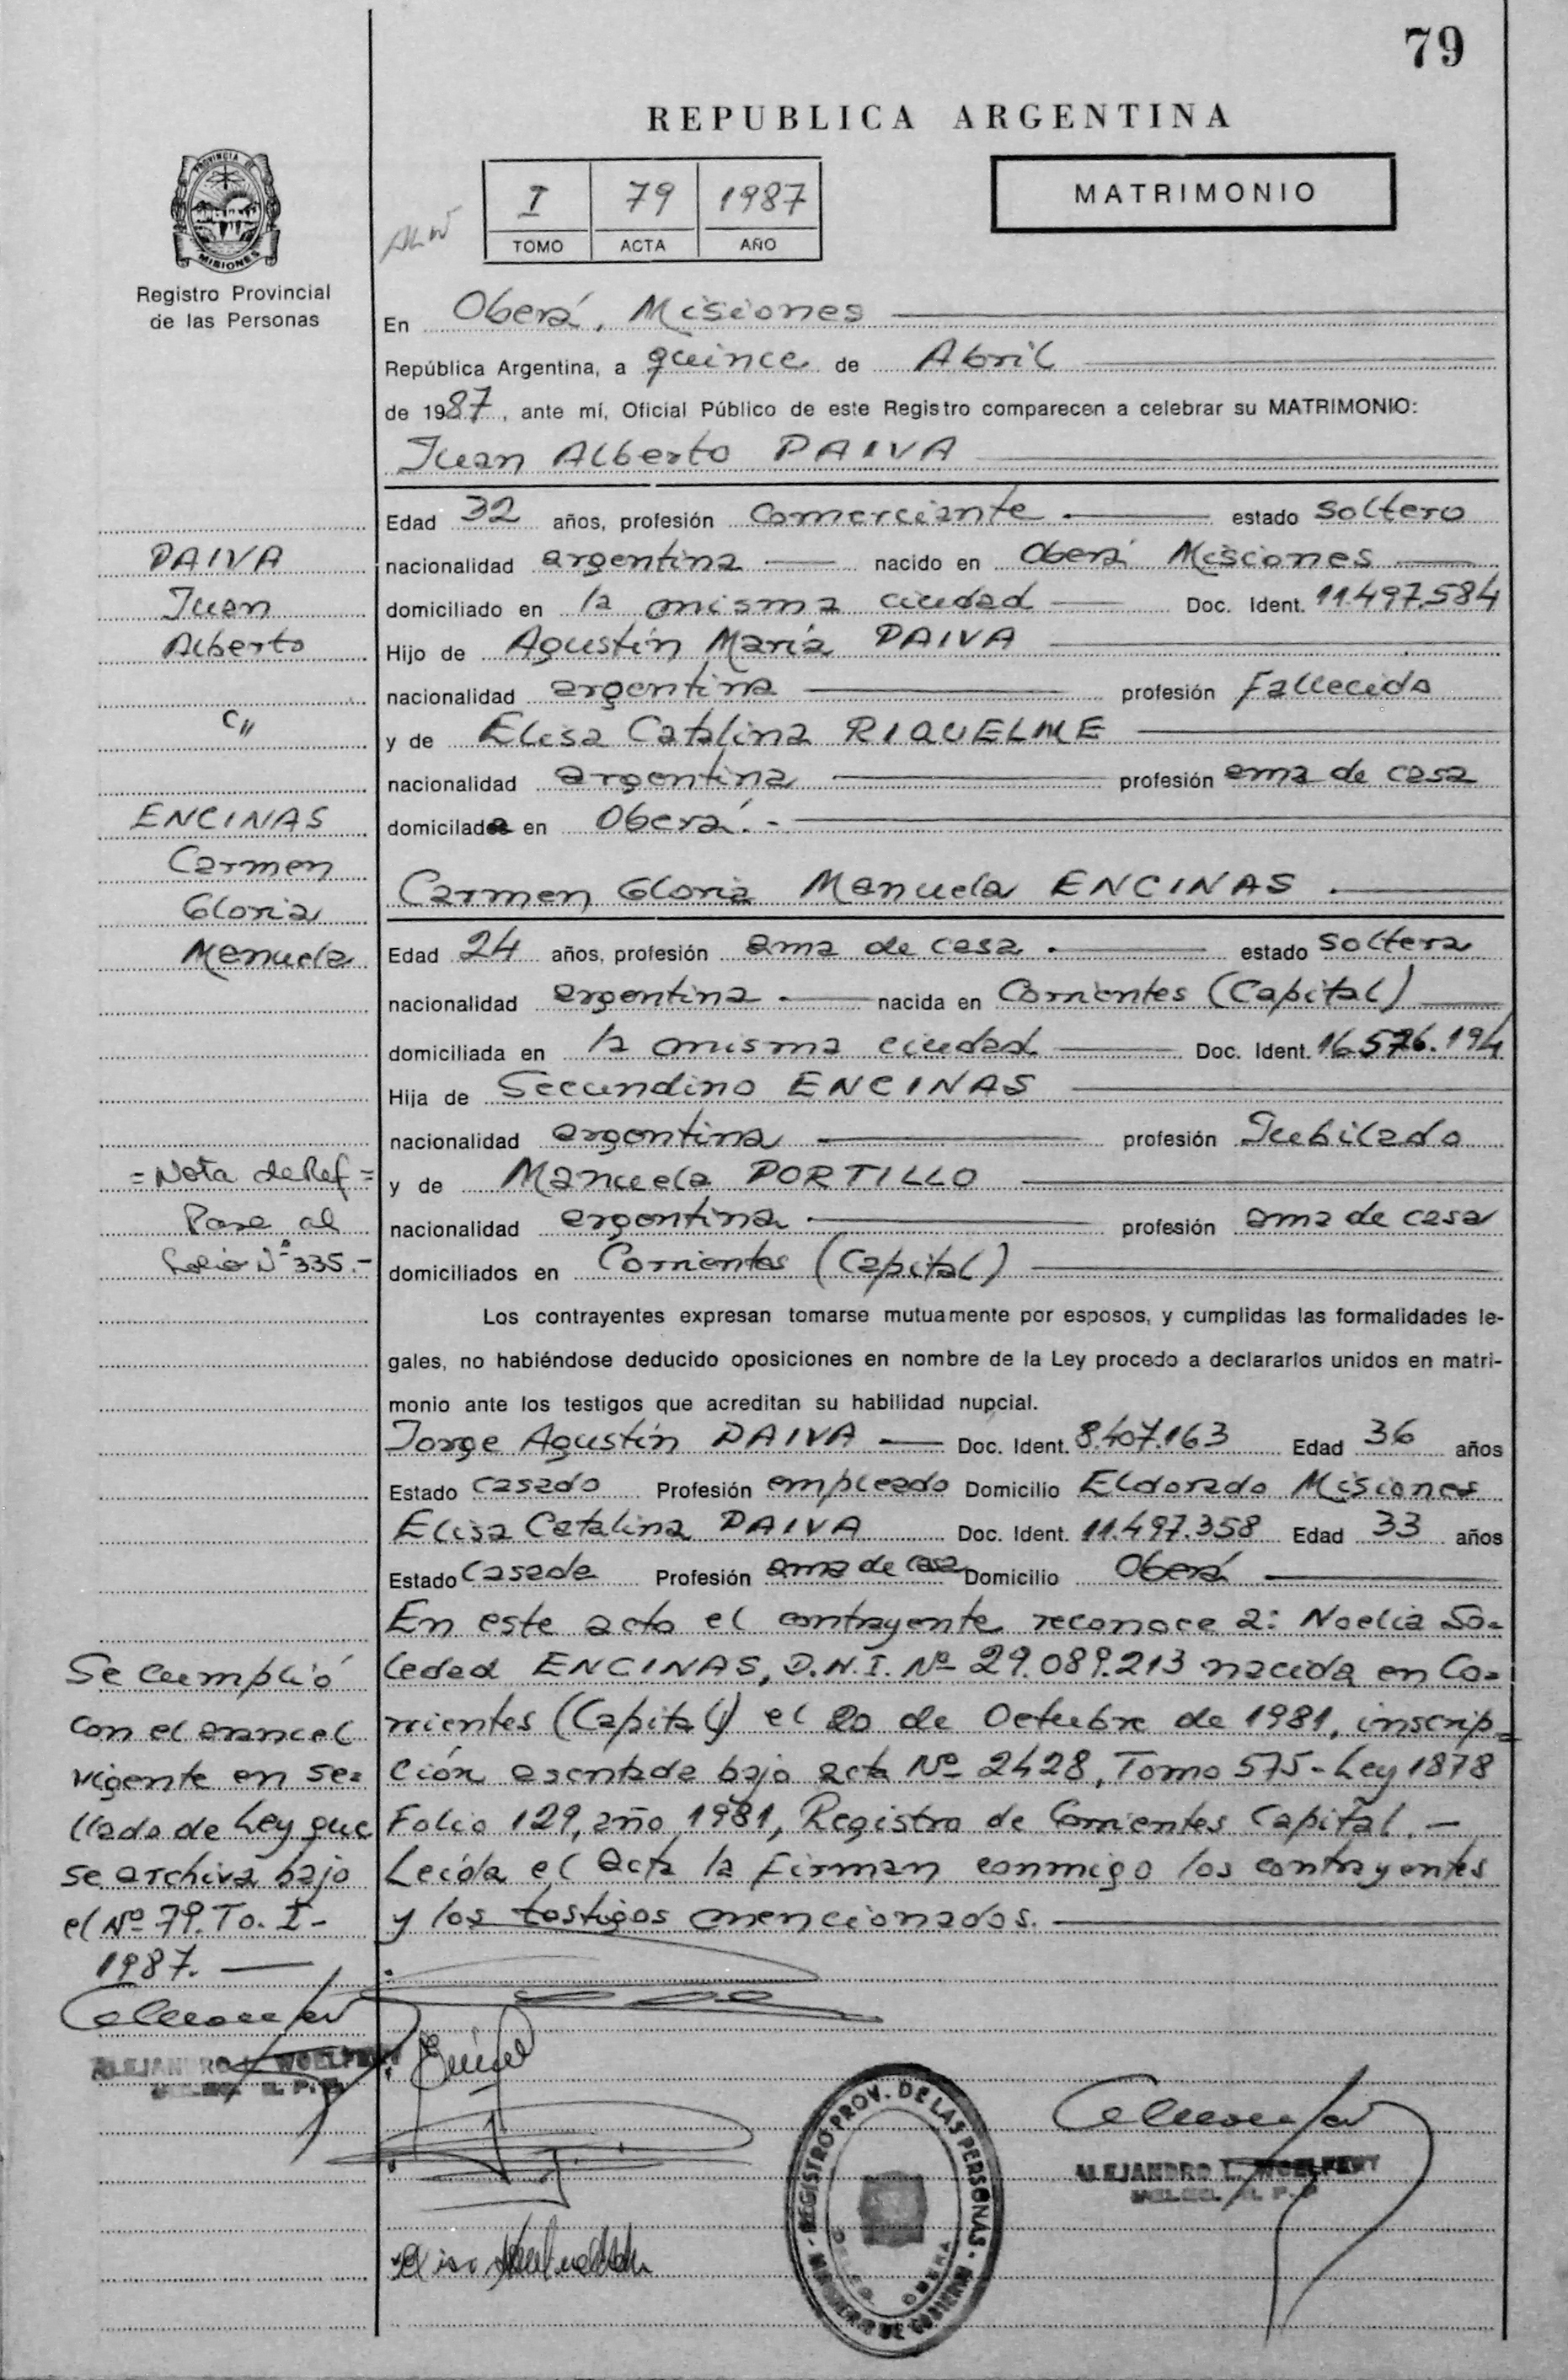 79
REPUBLICA ARGENTINA
PROVINCIA DE
MISIONES
Registro Provincial
de las Personas
I 79 1987
TOMO ACTA AÑO
MATRIMONIO
En Oberá, Misiones
República Argentina, a quince de Abril
de 1987, ante mí, Oficial Público de este Registro comparecen a celebrar su MATRIMONIO:
Juan Alberto PAIVA
Edad 32 años, profesión Comerciante estado soltero
nacionalidad argentina nacido en Oberá Misiones
domiciliado en la misma ciudad Doc. Ident. 11.497.584
Hijo de Agustín María PAIVA
nacionalidad argentina profesión Fallecido
y de Elisa Catalina RIQUELME
nacionalidad argentina profesión ama de casa
domicilada en Oberá.-
Carmen Gloria Manuela ENCINAS
Edad 24 años, profesión ama de casa estado soltera
nacionalidad argentina nacida en Corrientes (Capital)
domiciliada en la misma ciudad Doc. Ident. 16.576.194
Hija de Secundino ENCINAS
nacionalidad argentina profesión Jubilado
y de Manuela PORTILLO
nacionalidad argentina profesión ama de casa
domiciliados en Corrientes (Capital)
Los contrayentes expresan tomarse mutuamente por esposos, y cumplidas las formalidades le-
gales, no habiéndose deducido oposiciones en nombre de la Ley procedo a declararlos unidos en matri-
monio ante los testigos que acreditan su habilidad nupcial.
Jorge Agustín PAIVA Doc. Ident. 8.407.163 Edad 36 años
Estado casado Profesión empleado Domicilio Eldorado Misiones
Elisa Catalina PAIVA Doc. Ident. 11.497.358 Edad 33 años
Estado Casada Profesión ama de casa Domicilio Oberá
En este acto el contrayente reconoce a: Noelia So=
ledad ENCINAS, D.N.I. Nº 29.089.213 nacida en Co=
rrientes (Capital) el 20 de Octubre de 1981, inscrip=
ción asentada bajo acta Nº 2428, Tomo 575-Ley 1878
Folio 129, año 1981, Registro de Corrientes Capital.-
Leída el acta la firman conmigo los contrayentes
y los testigos mencionados.
PAIVA
Juan
Alberto
c//
ENCINAS
Carmen
Gloria
Manuela
=Nota de Ref=
Pase al
Folio Nº 335.-
Se cumplió
con el arancel
vigente en se=
llado de Ley que
se archiva bajo
el Nº 79. To. I-
1987.
ALEJANDRO L. WOELFERT
REGISTRO PROV. DE LAS PERSONAS
MINISTERIO DE GOBIERNO
OBERA
ALEJANDRO L. WOELFERT